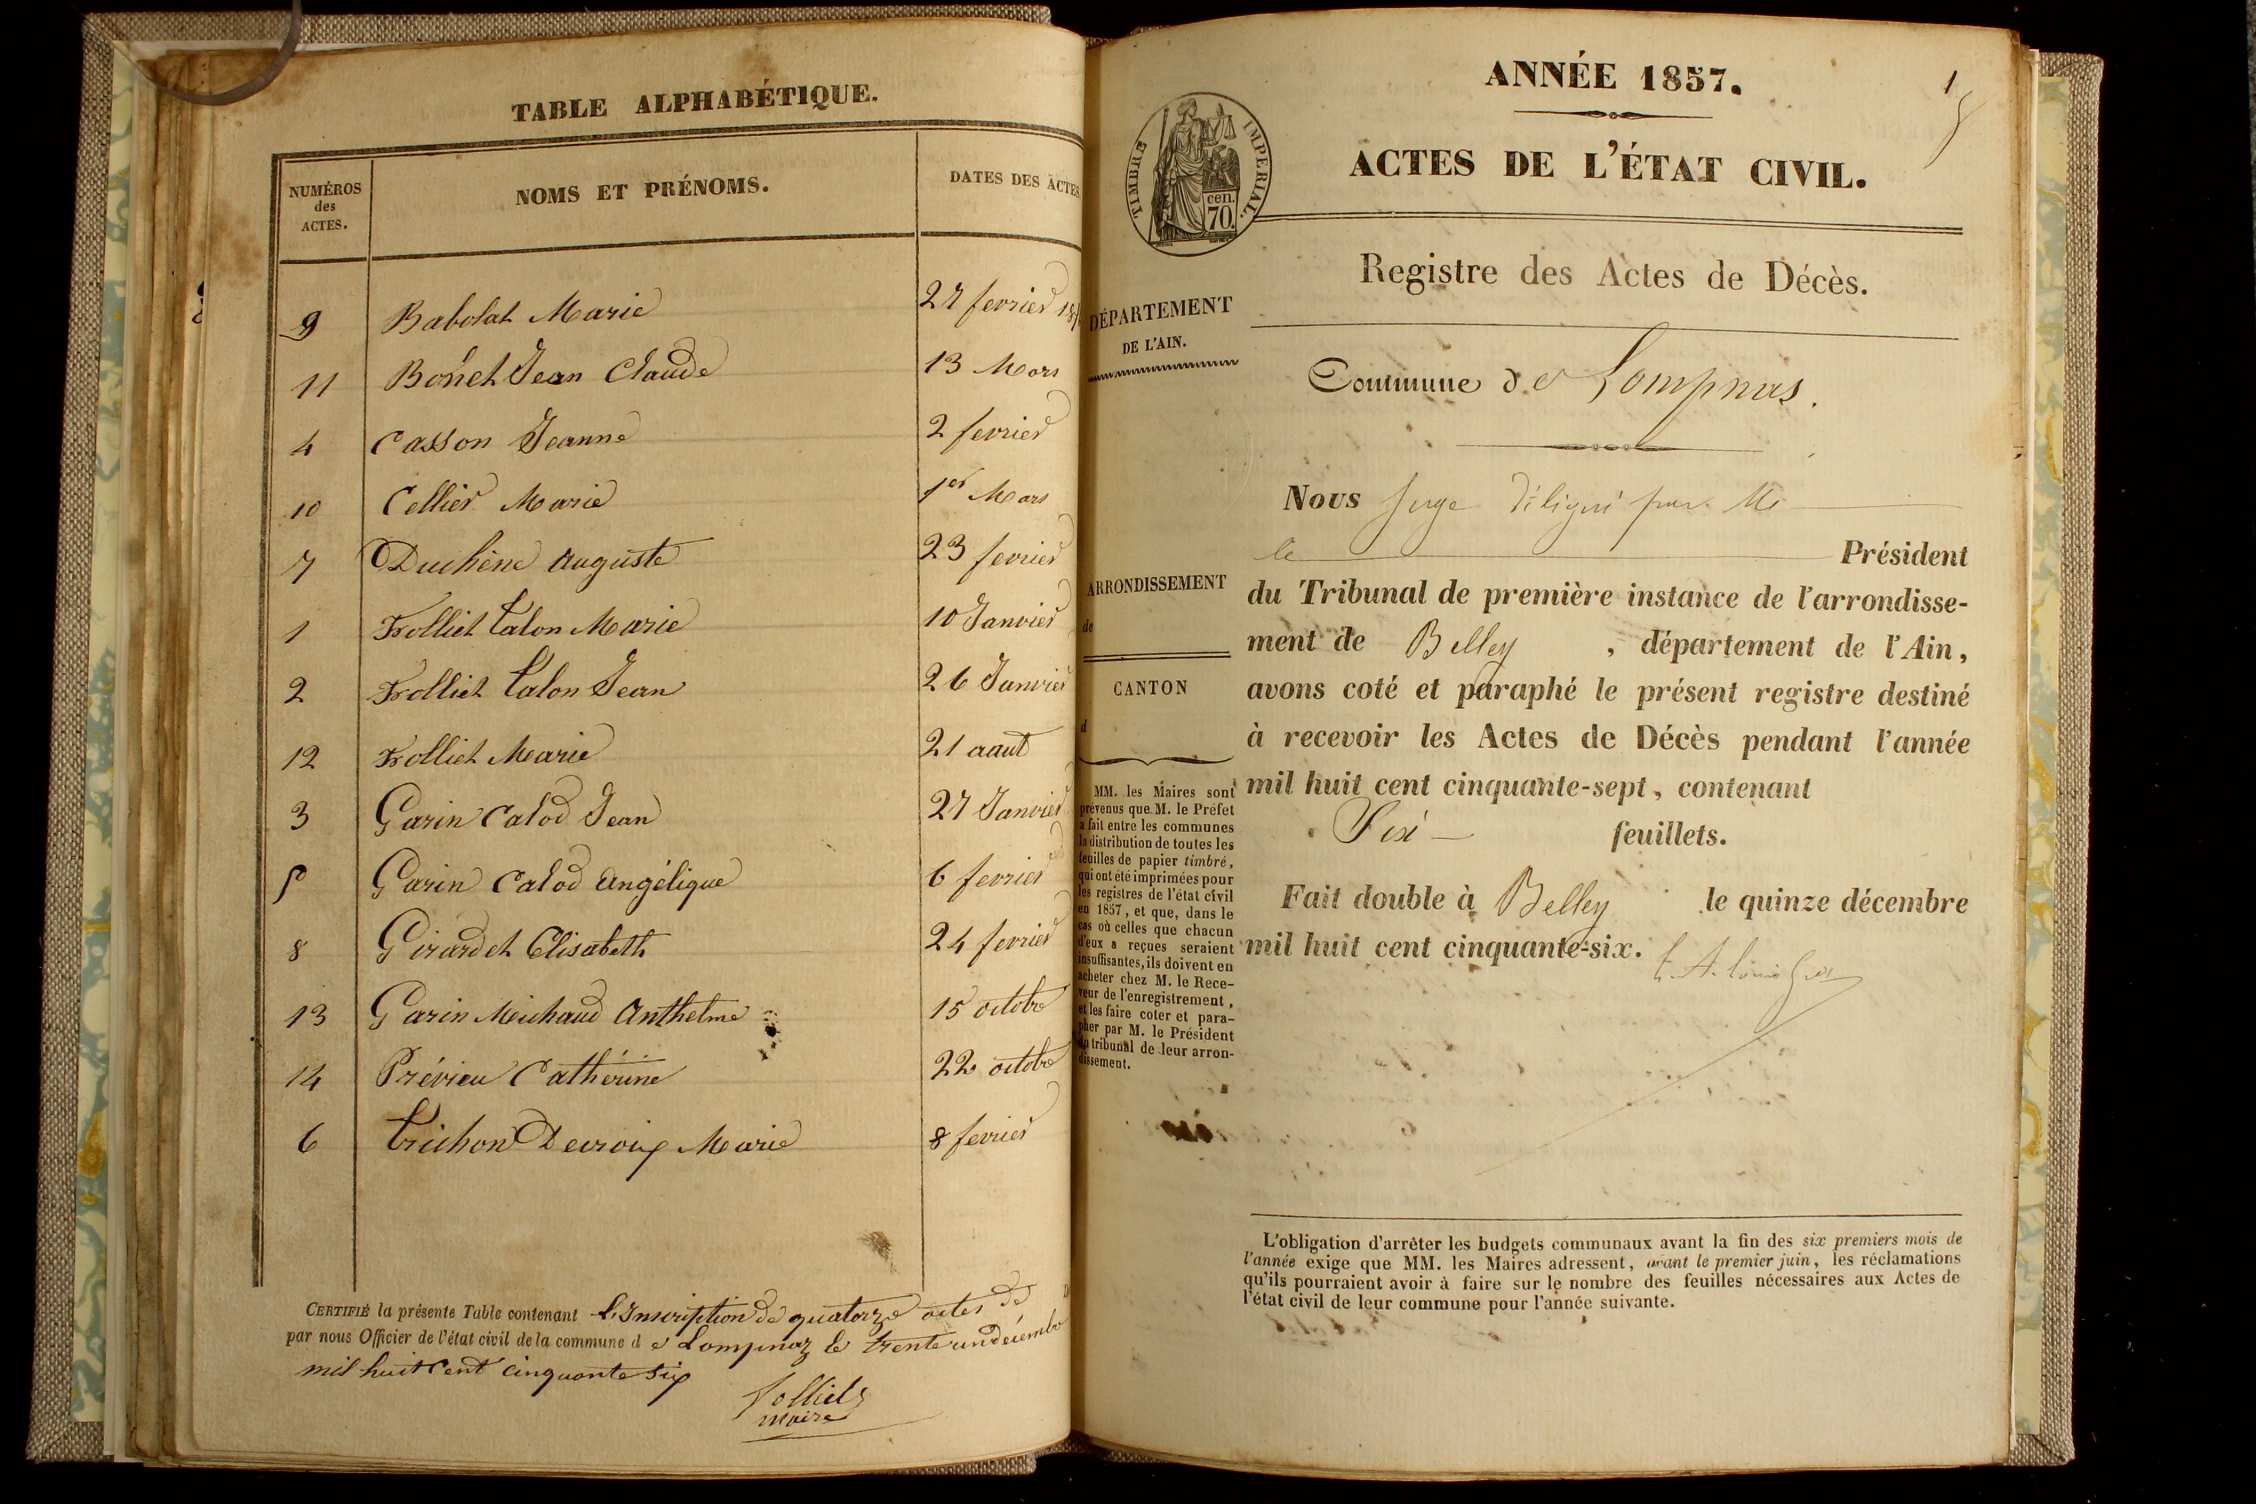 TABLE ALPHABÉTIQUE.
NUMÉROS des ACTES. NOMS ET PRÉNOMS. DATES DES ACTES
9 Babolat Marie 27 fevrier 18
11 Bonet Jean Claude 13 Mars
4 Casson Jeanne 2 fevrier
10 Cellier Marie 1er Mars
7 Duchêne Auguste 23 fevrier
1 Frolliet Talon Marie 10 Janvier
2 Frolliet Talon Jean 26 Janvier
12 Frolliet Marie 21 aaut
3 Garin Calod Jean 27 Janvier
5 Garin Calod Angélique 6 fevrier
8 Girardet Elisabeth 24 fevrier
13 Garin Michaud Anthelme 15 octobre
14 Prévieu Catherine 22 octobre
6 Trichon Decroix Marie 8 fevrier
CERTIFIÉ la présente Table contenant L'Inscription de quatorze actes de
par nous Officier de l'état civil de la commune d e Lompnaz le trente un décembre
mil huit cent cinquante six
folliet
maire
1
ANNÉE 1857.
ACTES DE L'ÉTAT CIVIL.
TIMBRE IMPERIAL.
cen.
70.
Registre des Actes de Décès.
DÉPARTEMENT
DE L'AIN.
Commune de Lompnas.
ARRONDISSEMENT
de
CANTON
d
MM. les Maires sont
prévenus que M. le Préfet
a fait entre les communes
la distribution de toutes les
feuilles de papier timbré,
qui ont été imprimées pour
les registres de l'état civil
en 1857, et que, dans le
cas où celles que chacun
d'eux a reçues seraient
insuffisantes, ils doivent en
acheter chez M. le Rece-
veur de l'enregistrement,
et les faire coter et para-
pher par M. le Président
du tribunal de leur arron-
dissement.
Nous Juge délégué par Mr
le Président
du Tribunal de première instance de l'arrondisse-
ment de Belley , département de l'Ain,
avons coté et paraphé le présent registre destiné
à recevoir les Actes de Décès pendant l'année
mil huit cent cinquante-sept, contenant
Six feuillets.
Fait double à Belley le quinze décembre
mil huit cent cinquante-six.
L'obligation d'arrêter les budgets communaux avant la fin des six premiers mois de
l'année exige que MM. les Maires adressent, avant le premier juin, les réclamations
qu'ils pourraient avoir à faire sur le nombre des feuilles nécessaires aux Actes de
l'état civil de leur commune pour l'année suivante.